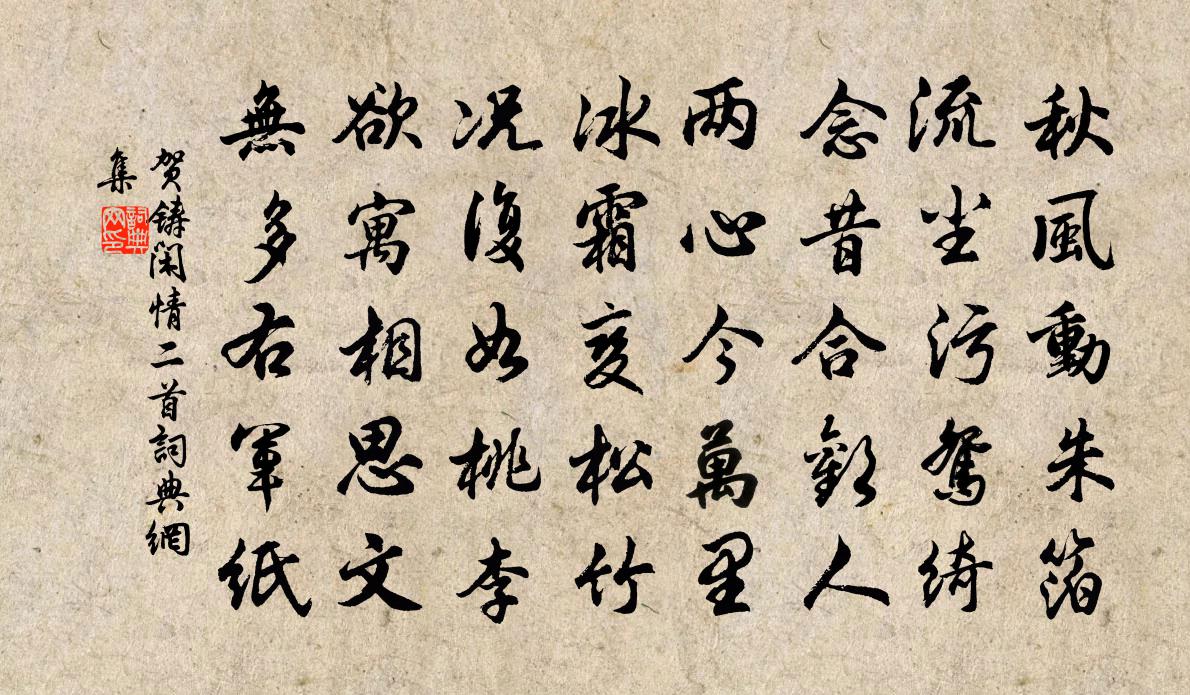 秋風動朱箔
流尘污鴛綺
念昔合歡人
两心今萬里
冰霜变松竹
况復如桃李
欲寓相思文
無多右軍紙
贺鑄閑情二首詞典網
集
詞典
网印